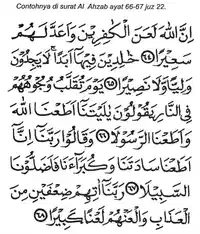 Contohnya di surat Al Ahzab ayat 66-67 juz 22.
إِنَّ اللَّهَ لَعَنَ الْكَافِرِينَ وَأَعَدَّ لَهُمْ
سَعِيرًا ﴿٦٤﴾ خَالِدِينَ فِيهَا أَبَدًا لَا يَجِدُونَ
وَلِيًّا وَلَا نَصِيرًا ﴿٦٥﴾ يَوْمَ تُقَلَّبُ وُجُوهُهُمْ
فِي النَّارِ يَقُولُونَ يَا لَيْتَنَا أَطَعْنَا اللَّهَ
وَأَطَعْنَا الرَّسُولَا ﴿٦٦﴾ وَقَالُوا رَبَّنَا إِنَّا
أَطَعْنَا سَادَتَنَا وَكُبَرَاءَنَا فَأَضَلُّونَا
السَّبِيلَا ﴿٦٧﴾ رَبَّنَا آتِهِمْ ضِعْفَيْنِ مِنَ
الْعَذَابِ وَالْعَنْهُمْ لَعْنًا كَبِيرًا ﴿٦٨﴾